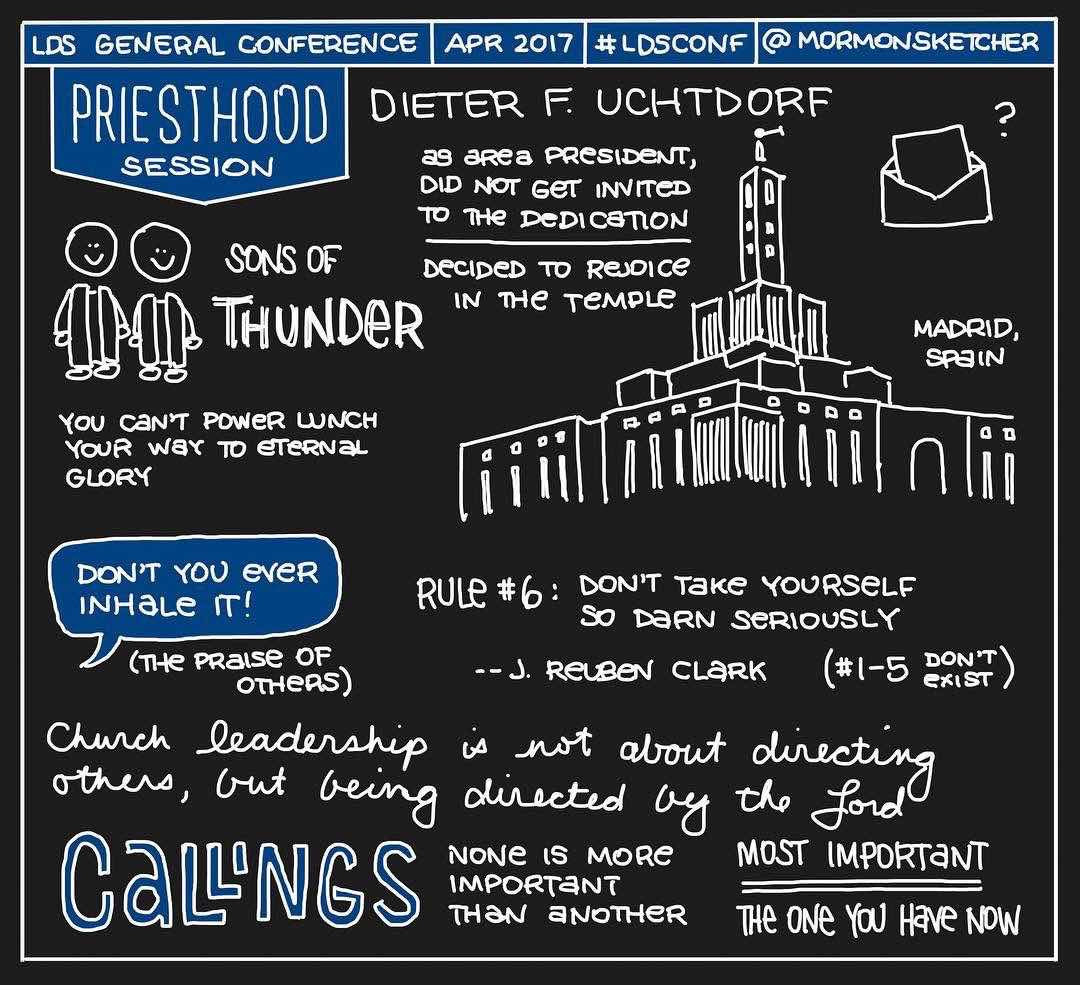 LDS GENERAL CONFERENCE APR 2017 #LDSCONF @MORMONSKETCHER
PRIESTHOOD
SESSION
DIETER F. UCHTDORF
?
as area PRESIDENT,
DID NOT GET INVITED
TO THE DEDICATION
DECIDED TO REJOICE
IN THE TEMPLE
MADRID,
SPAIN
SONS OF
THUNDER
YOU CAN'T POWER LUNCH
YOUR WAY TO ETERNAL
GLORY
DON'T YOU EVER
INHALE IT!
(THE PRAISE OF
OTHERS)
RULE #6: DON'T TAKE YOURSELF
SO DARN SERIOUSLY
-- J. REUBEN CLARK (#1-5 DON'T
EXIST)
Church leadership is not about directing
others, but being directed by the Lord
CALLINGS
NONE IS MORE
IMPORTANT
THAN ANOTHER
MOST IMPORTANT
THE ONE YOU HAVE NOW